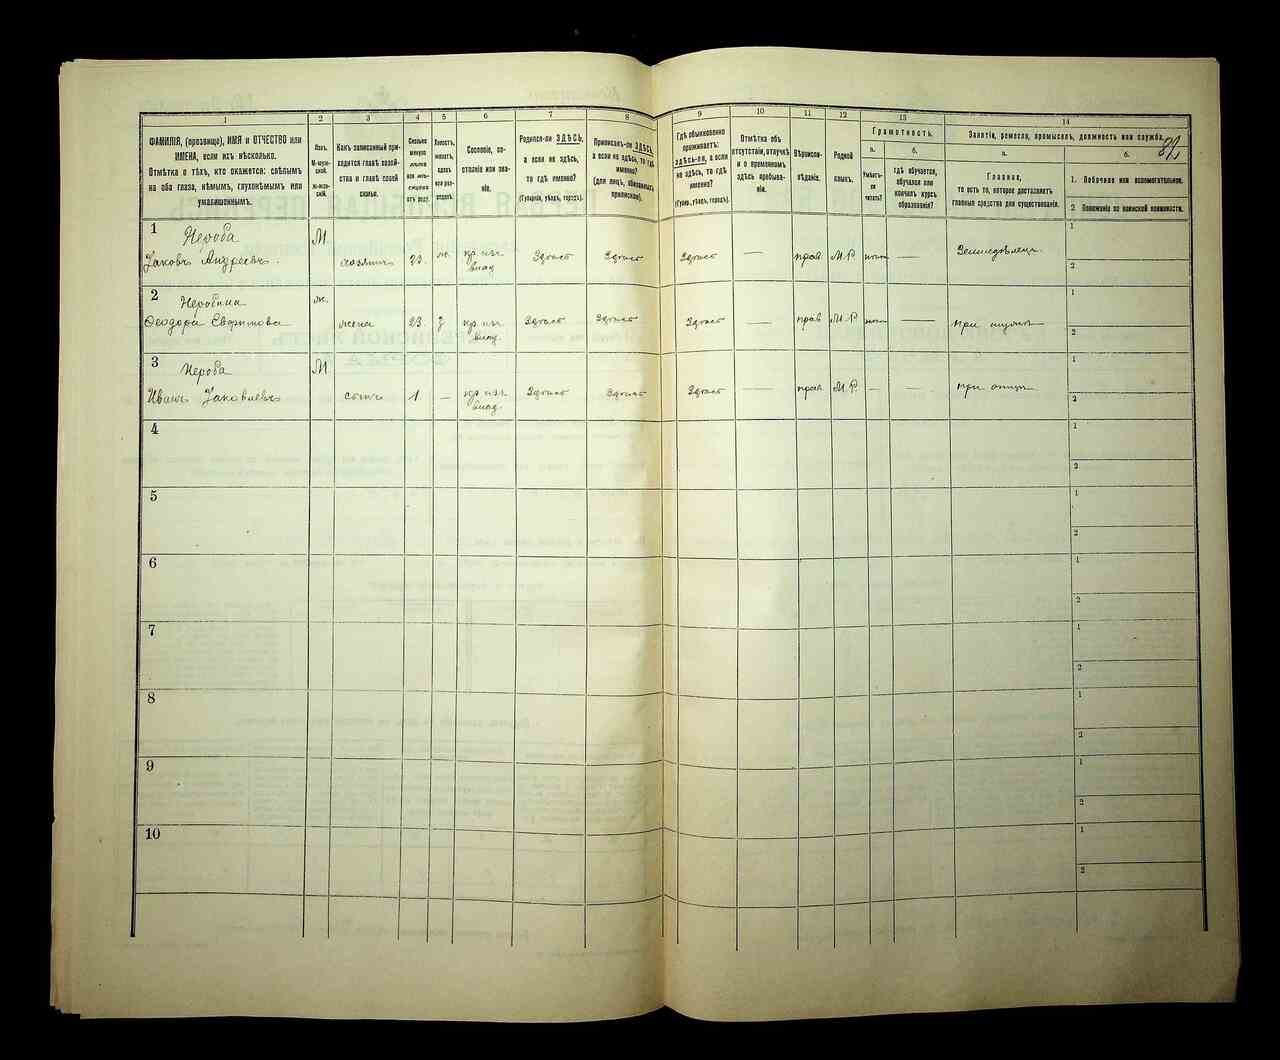 1
2
3
4
5
6
7
8
9
10
11
12
13
14
ФАМИЛІЯ, (прозвище), ИМЯ и ОТЧЕСТВО или
ИМЕНА, если ихъ нѣсколько.
Отмѣтка о тѣхъ, кто окажется: слѣпымъ
на оба глаза, нѣмымъ, глухонѣмымъ или
умалишеннымъ.
Полъ.
М-муж-
ской.
Ж-жен-
скій.
Какъ записанный при-
ходится главѣ хозяй-
ства и главѣ своей
семьи.
Сколько
минуло
лѣтъ
или мѣ-
сяцевъ
отъ роду.
Холостъ,
женатъ,
вдовъ
или раз-
веденъ.
Сословіе, со-
стояніе или зва-
ніе.
Родился-ли ЗДѢСЬ,
а если не здѣсь,
то гдѣ именно?
(Губернія, уѣздъ, городъ).
Приписанъ-ли ЗДѢСЬ,
а если не здѣсь, то гдѣ
именно?
(для лицъ, обязанныхъ
припискою).
Гдѣ обыкновенно
проживаетъ:
здѣсь-ли, а если
не здѣсь, то гдѣ
именно?
(Губер., уѣздъ, городъ).
Отмѣтка объ
отсутствіи, отлучкѣ
и о временномъ
здѣсь пребыва-
ніи.
Вѣроиспо-
вѣданіе.
Родной
языкъ.
Грамотность.
а.
б.
Умѣетъ-
ли
читать?
гдѣ обучается,
обучался или
кончилъ курсъ
образованія?
Занятіе, ремесло, промыселъ, должность или служба.
а.
б.
Главное,
то есть то, которое доставляетъ
главныя средства для существованія.
1. Побочное или вспомогательное.
2 Положеніе по воинской повинности.
1
Нероба
Яковъ Андреевъ.
М
хозяинъ
23.
ж.
кр. изъ
влад.
Здѣсь
Здѣсь
Здѣсь
—
прав.
М.Р.
—
Земледѣлецъ
1
2
2
Неробина
Ѳеодора Евфимова
ж.
жена
23.
З
кр. изъ
влад.
Здѣсь
Здѣсь
Здѣсь
—
прав
М.Р.
—
при мужѣ
1
2
3
Нероба
Иванъ Яковлевъ
М
сынъ
1
—
кр. изъ
влад.
Здѣсь
Здѣсь
Здѣсь
—
прав.
М.Р.
—
—
при отцѣ
1
2
4
1
2
5
1
2
6
1
2
7
1
2
8
1
2
9
1
2
10
1
2